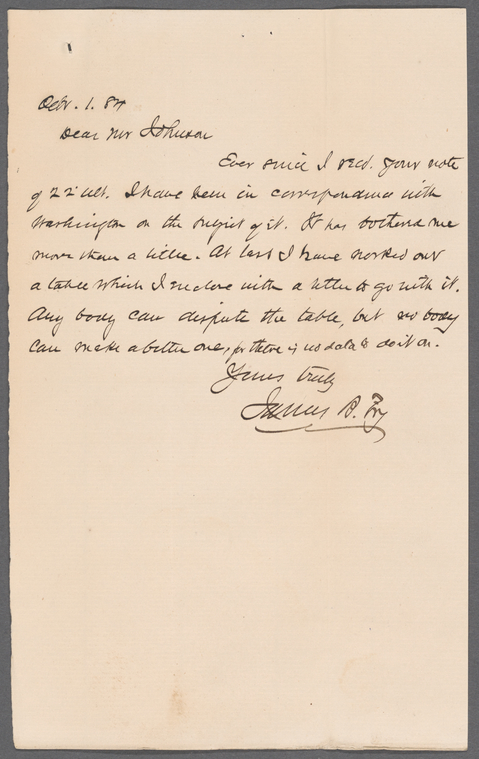 Octr. 1. 84
Dear Mr Johnson
Ever since I recd. your note
of 22 ult. I have been in correspondence with
Washington on the subject of it. It has bothered me
more than a little. At last I have worked out
a table which I enclose with a letter to go with it.
Any body can dispute the table, but no body
can make a better one, for there is no data to do it on.
Yours truly
James B. Fry